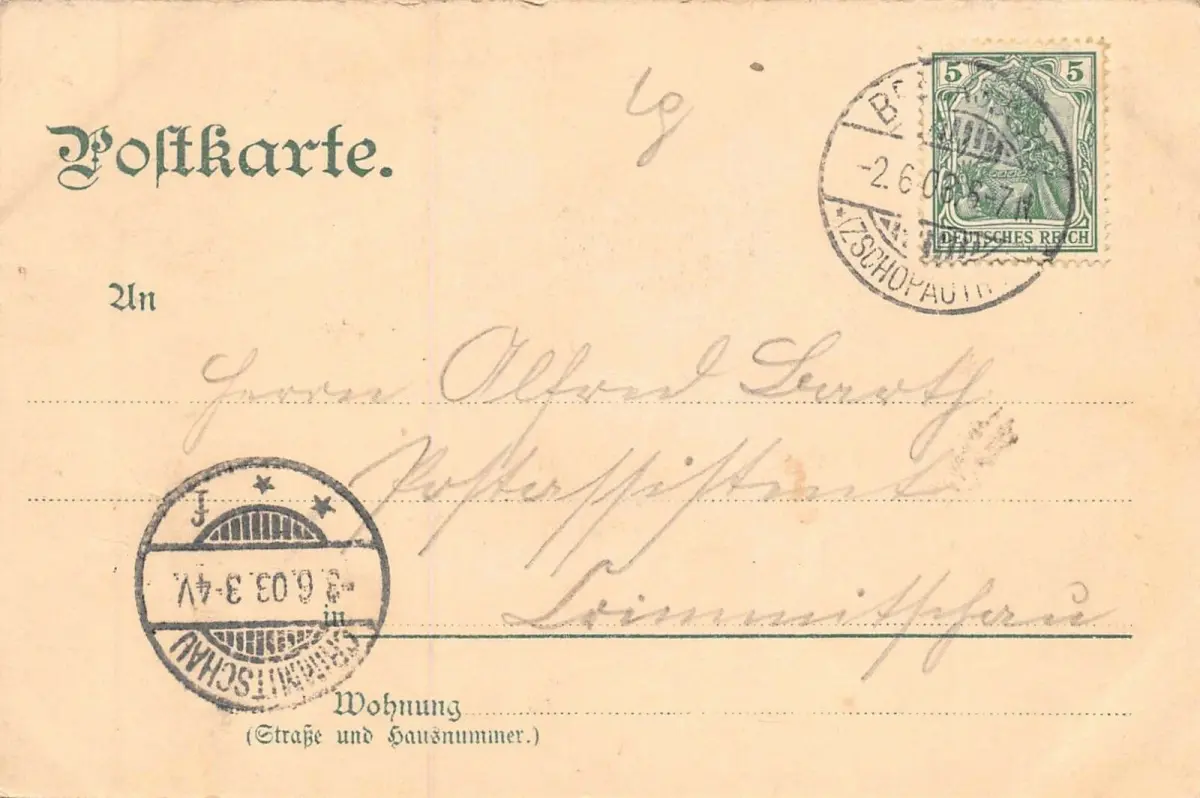 Postkarte.
lg
5 5
DEUTSCHES REICH
-2.6.03 6-7N.
*(ZSCHOPAUTH
An
Herrn Alfred Barth
Postassistent
in Crimmitschau
f
-3.6.03. 3-4V.
CRIMMITSCHAU
Wohnung
(Straße und Hausnummer.)